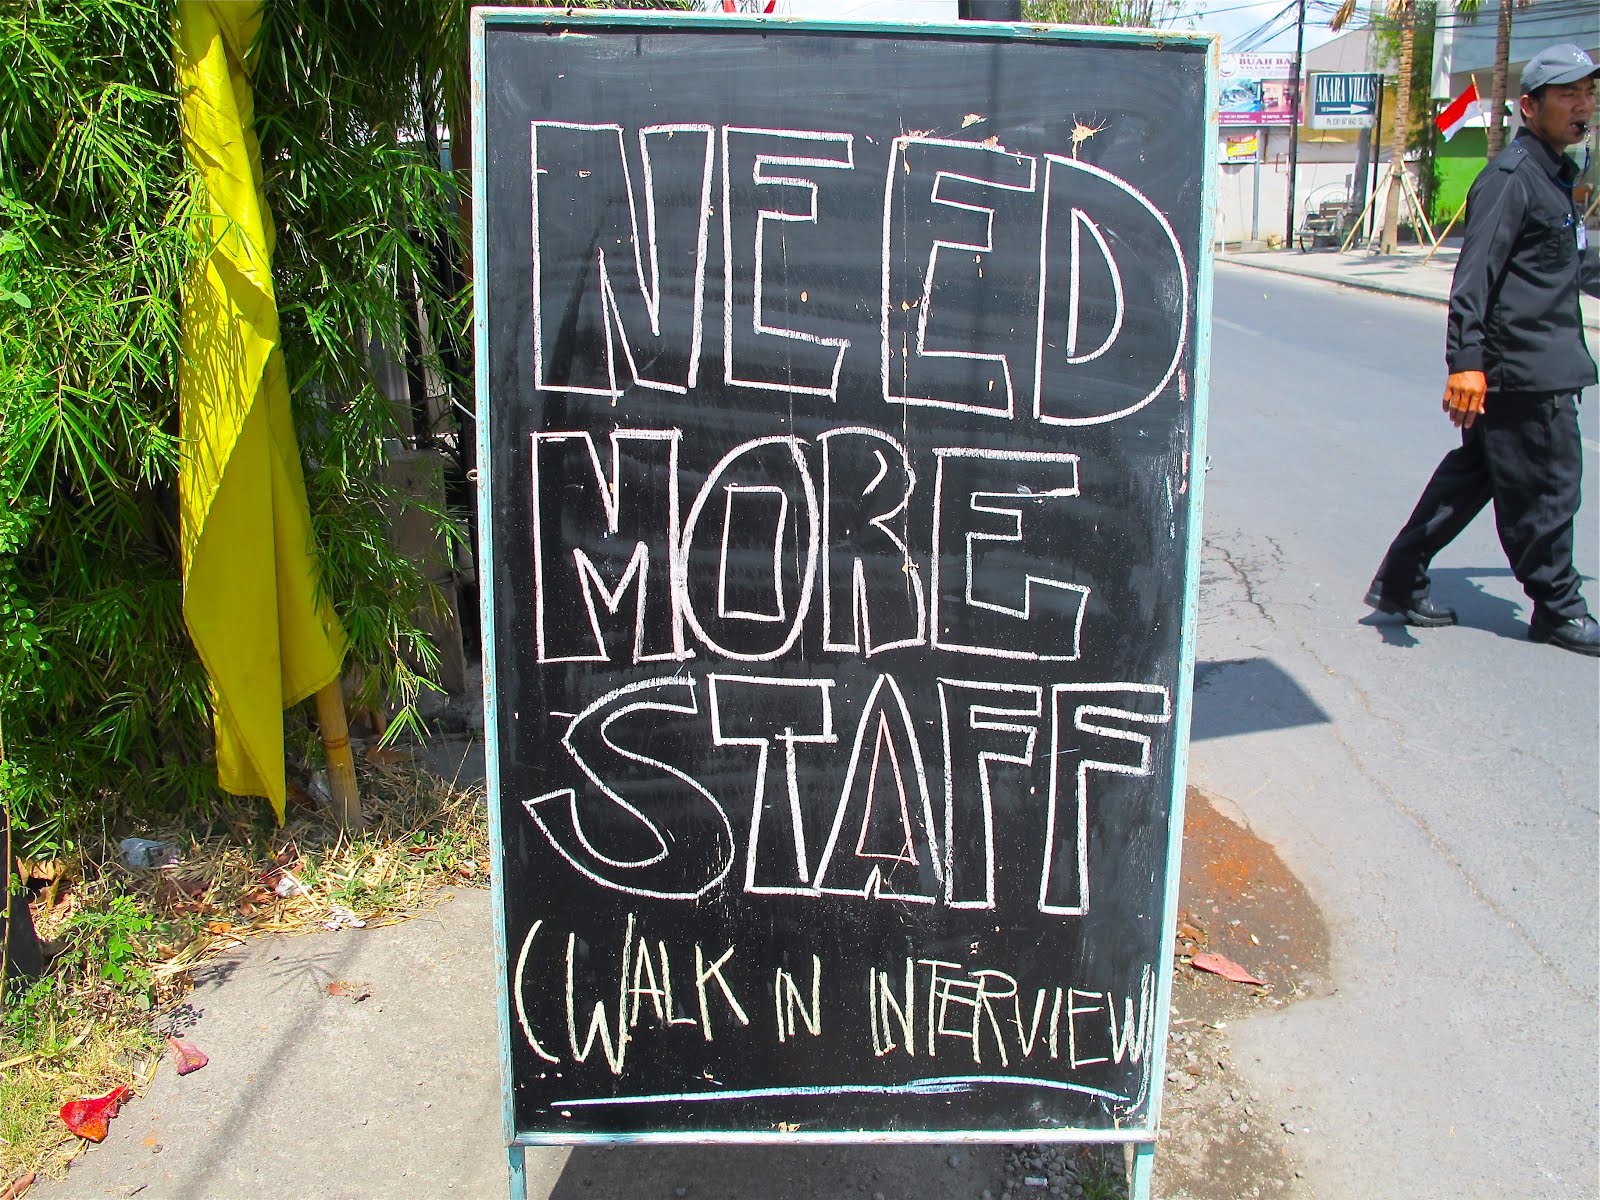 NEED
MORE
STAFF
(WALK IN INTERVIEW)
BUAH BA
VILLAS
AKARA VILLAS